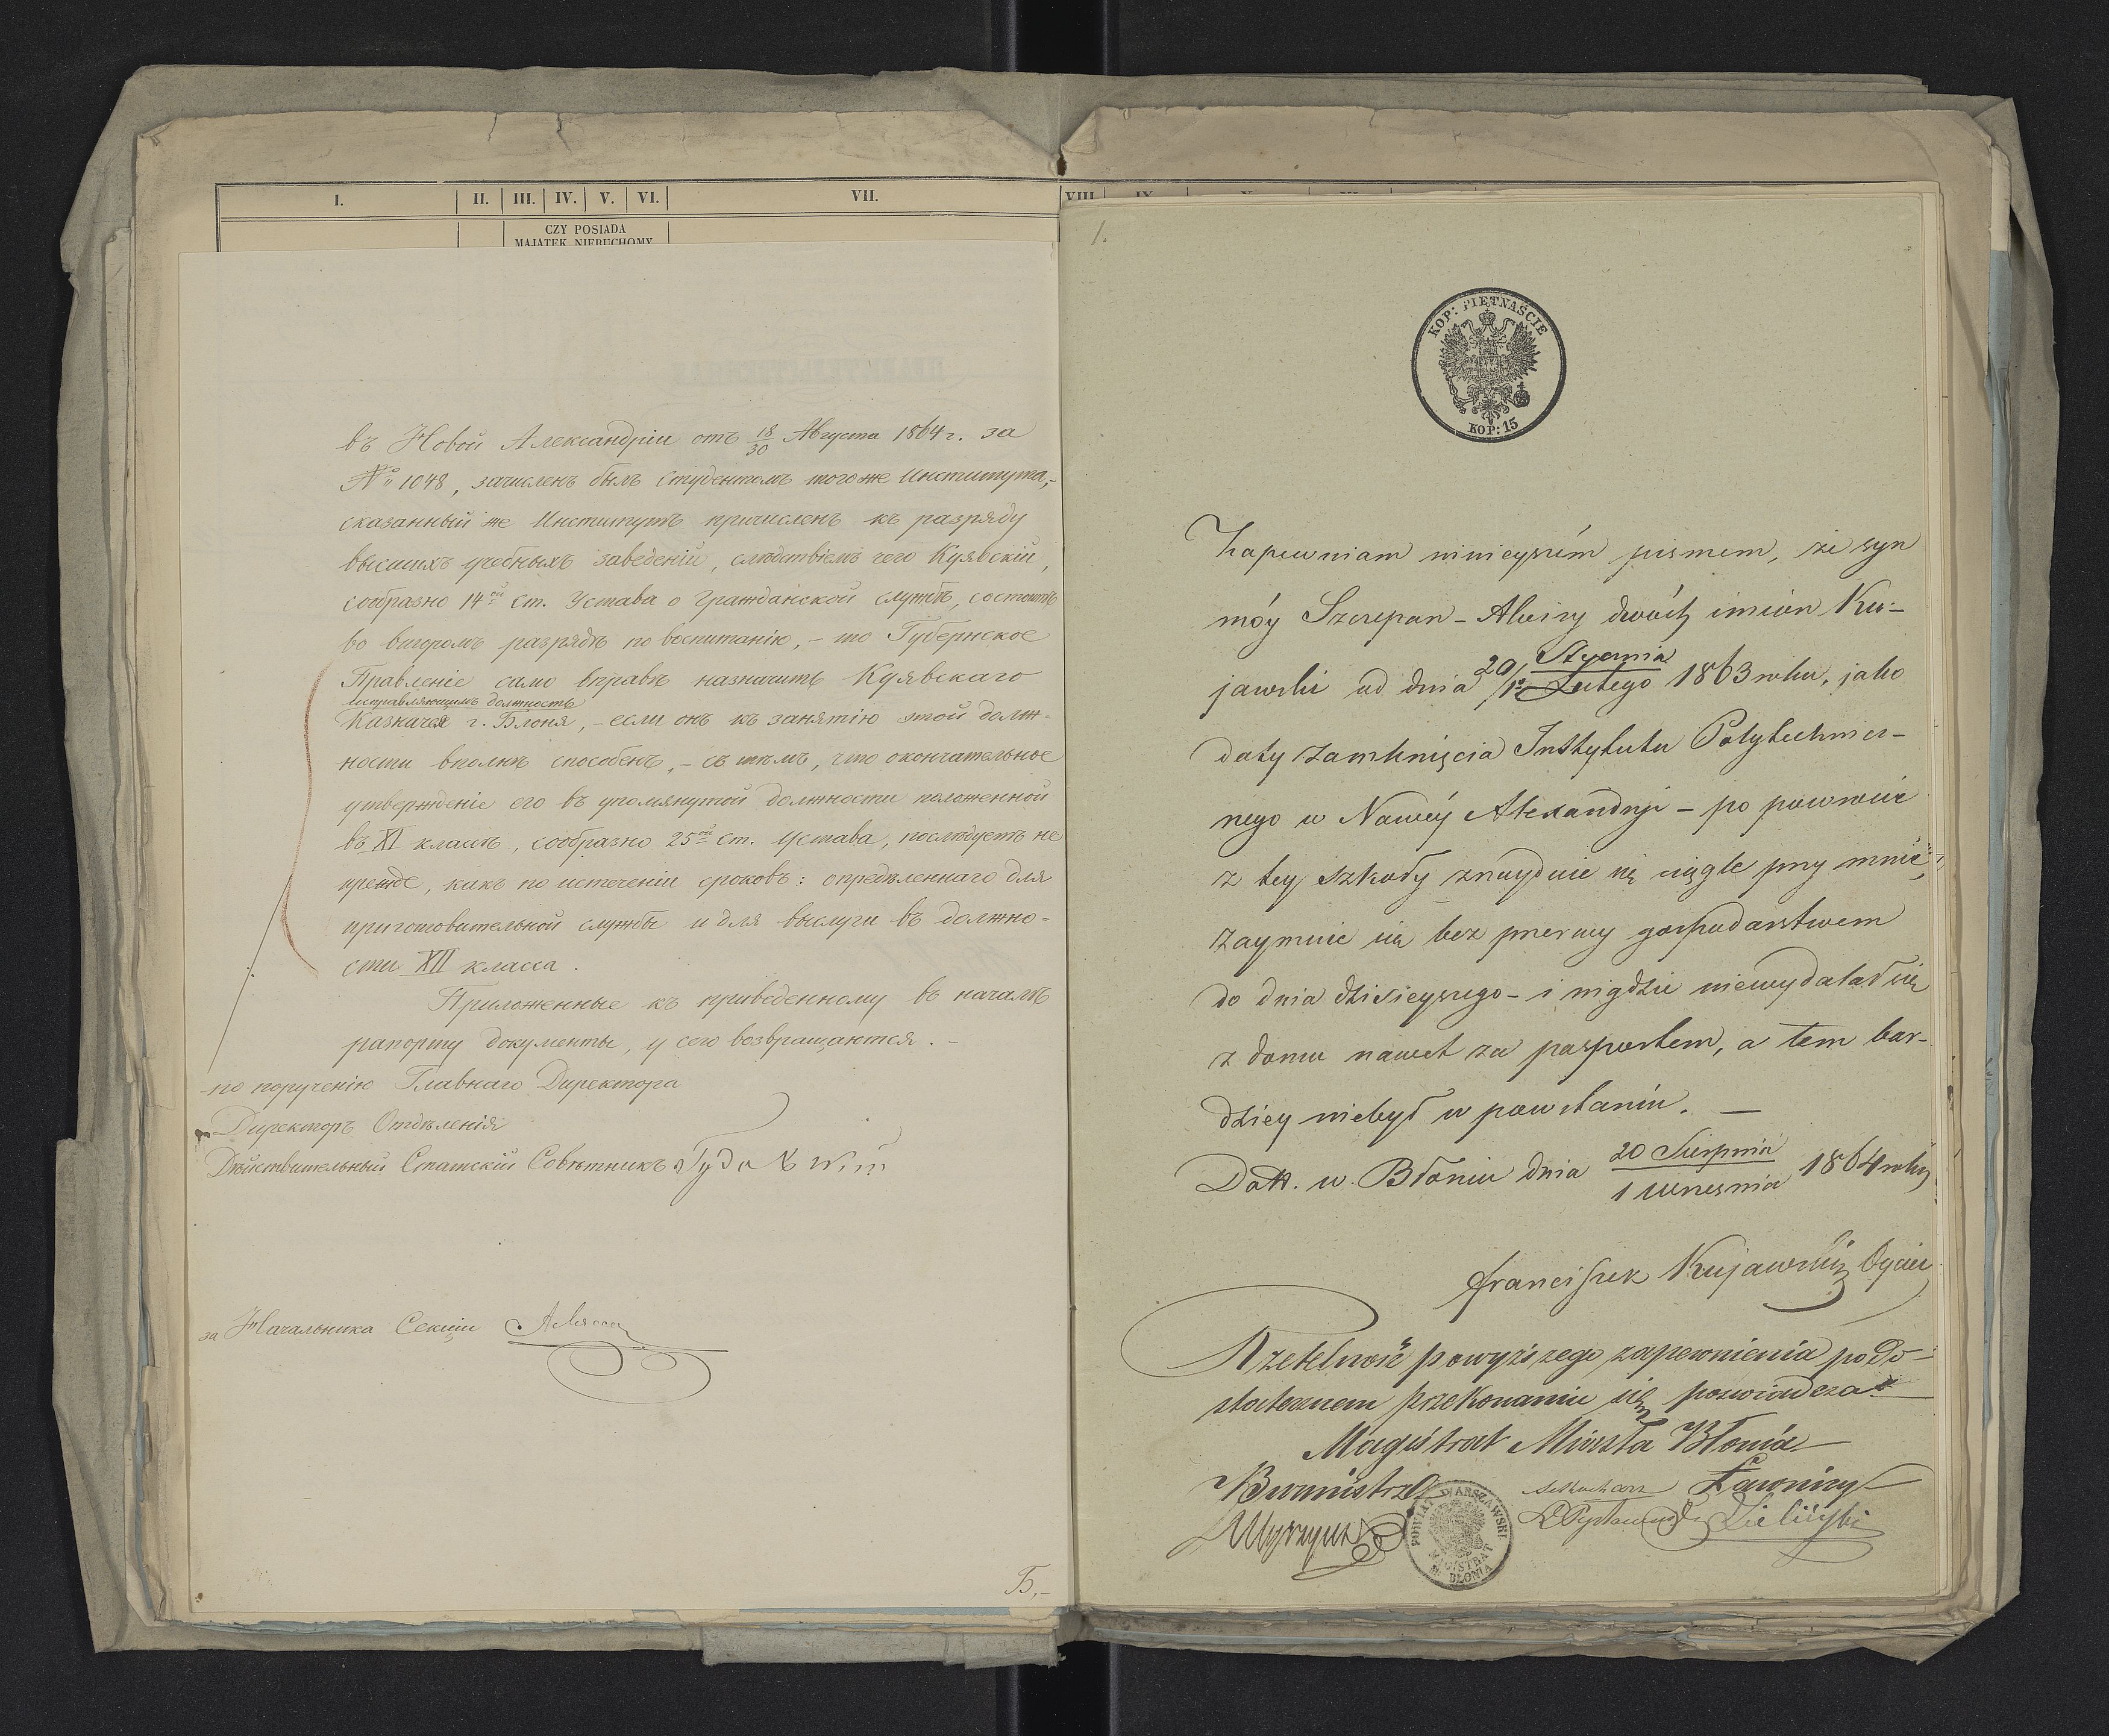 I. II. III. IV. V. VI. VII. VIII. IX.
CZY POSIADA
MAJĄTEK NIERUCHOMY
въ Новой Александріи отъ 18/30 Августа 1864 г. за
№ 1048, зачисленъ былъ Студентомъ того же Института,-
сказанный же Институтъ причисленъ къ разряду
высшихъ учебныхъ заведеній, слѣдствіемъ чего Куявскій,
сообразно 14ой ст. Устава о Гражданской службѣ, состоитъ
во второмъ разрядѣ по воспитанію, - то Губернское
Правленіе само въ правѣ назначить Куявскаго
исправляющимъ должность
Казначея г. Блоня, - если онъ къ занятію этой долж-
ности вполнѣ способенъ, - съ тѣмъ, что окончательное
утвержденіе его въ упомянутой должности положенной
въ XI классѣ, сообразно 25ой ст. Устава, послѣдуетъ не
прежде, какъ по истеченіи сроковъ: опредѣленнаго для
приготовительной службы и для выслуги въ должно-
сти XII класса.
Приложенные къ приведенному въ началѣ
рапорту документы, у сего возвращаются. -
по порученію Главнаго Директора
Директоръ Отдѣленія
Дѣйствительный Статскій Совѣтникъ
за Начальника Секціи
Б.-
1.
KOP: PIĘTNAŚCIE
KOP: 15
Zapewniam niniejszém pismem, że syn
móy Szczepan - Aloizy dwóch imion Ku-
jawski od dnia 20/1o Stycznia/Lutego 1863 roku, jako
daty zamknięcia Instytutu Politechnicz-
nego w Nowéy Alexandryi - po powrocie
z tey szkoły znayduie się ciągle przy mnie,
zaymuie się bez przerwy gospodarstwem
do dnia dzisieyszego - i nigdzie niewydalał się
z domu nawet za pasportem, a tem bar-
dziey niebył w powstaniu. —
Datt. w Błoniu dnia 20 Sierpnia/1 Września 1864 roku
Franciszek Kujawski Oyciec
Rzetelność powyższego zapewnienia po do-
statecznem przekonaniu się poswiadcza
Magistrat Miasta Błonia
Burmistrz Ławnicy
POWIAT WARSZAWSKI
MAGISTRAT
M. BŁONIA